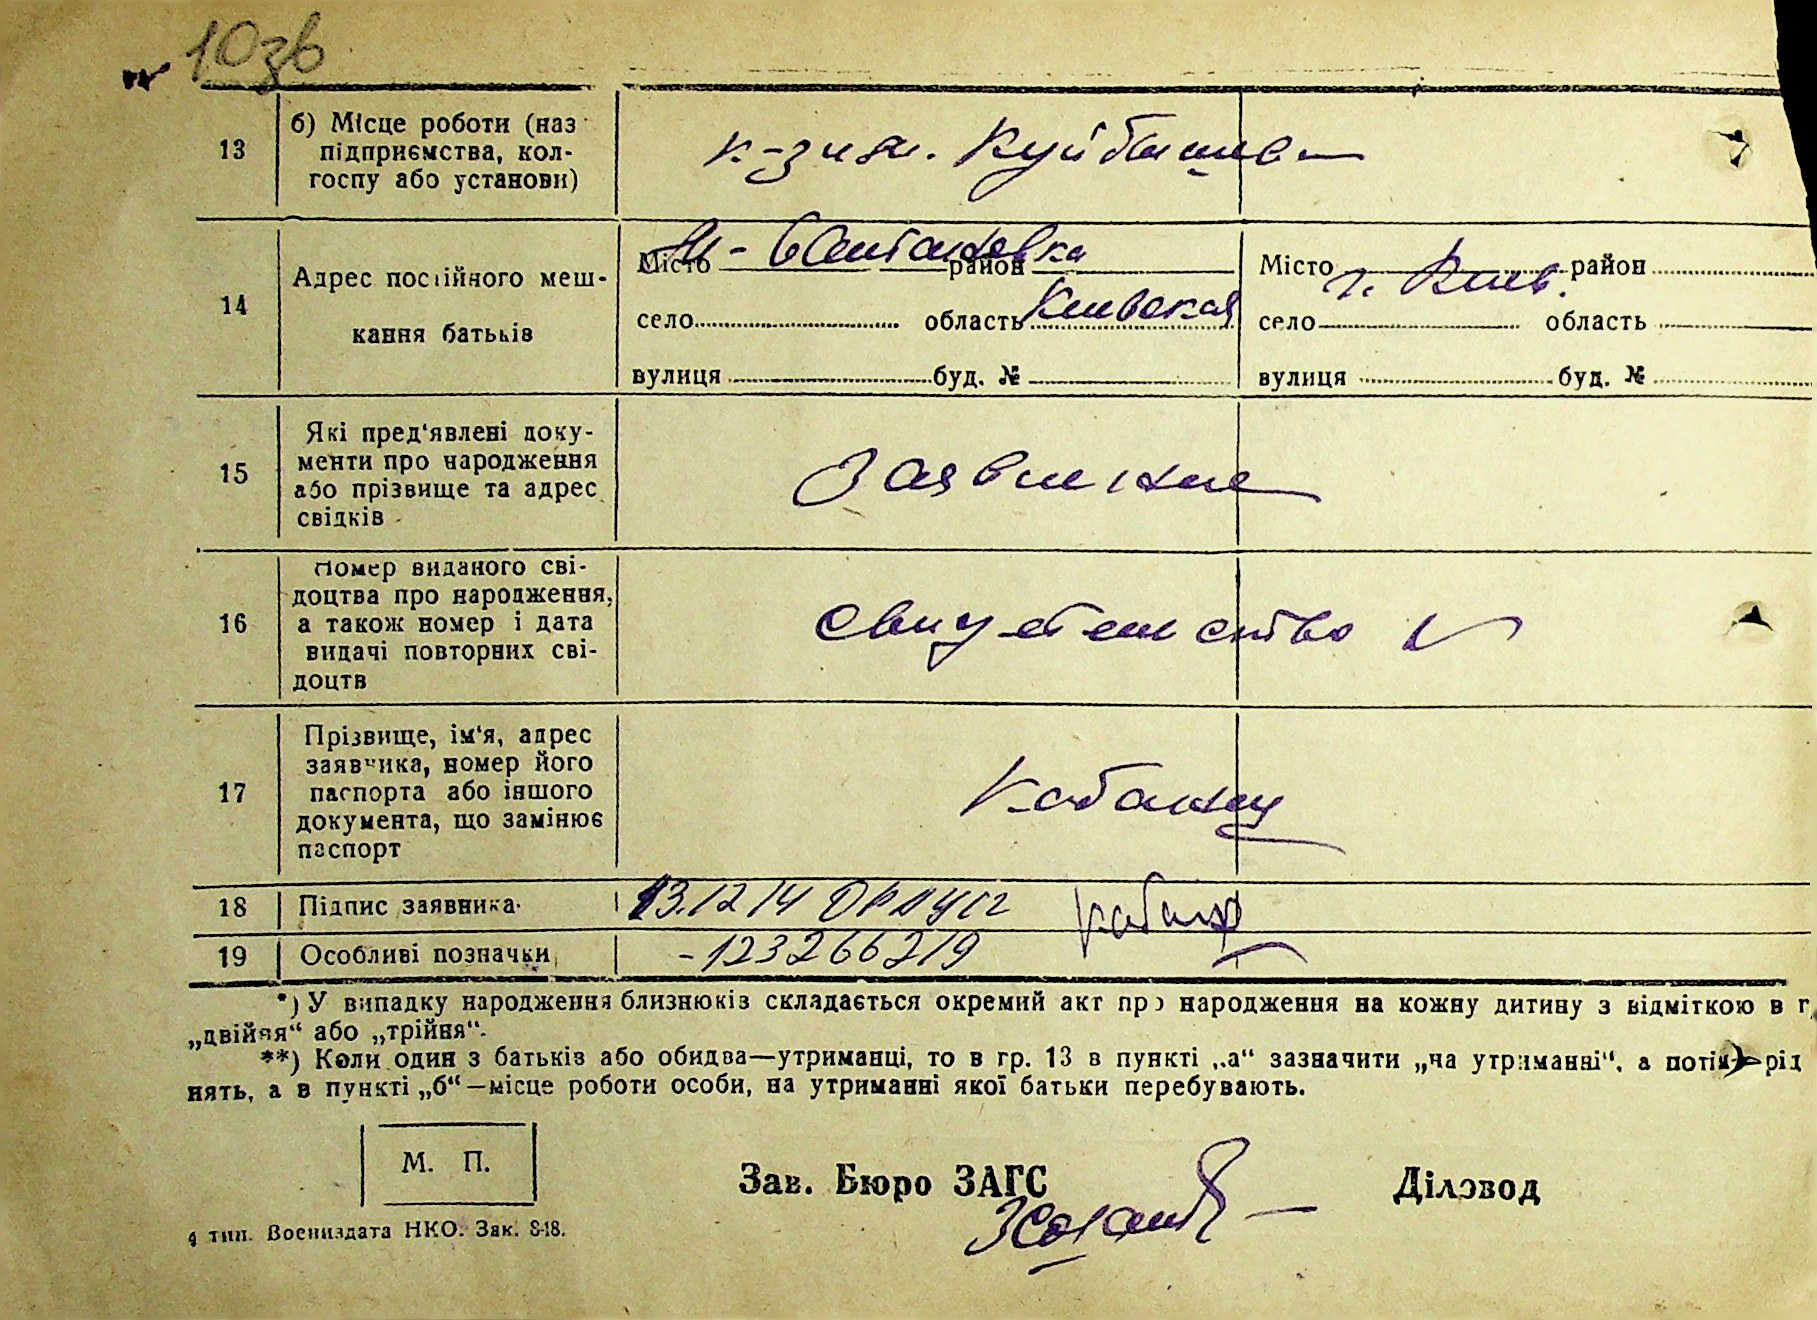 10зв
13 б) Місце роботи (наз
підприємства, кол-
госпу або установи)
к-з им. Куйбышева
14 Адрес постійного меш-
кання батьків
Місто район
село область Киевская
вулиця буд. №
Місто г. Киев. район
село область
вулиця буд. №
15 Які пред'явлені доку-
менти про народження
або прізвище та адрес
свідків
Заявление
16 Номер виданого сві-
доцтва про народження,
а також номер і дата
видачі повторних сві-
доцтв
Свидетельство
17 Прізвище, ім'я, адрес
заявника, номер його
паспорта або іншого
документа, що замінює
паспорт
18 Підпис заявника
13.12.14
19 Особливі позначки
-123266219
*) У випадку народження близнюків складається окремий акт про народження на кожну дитину з відміткою в г
„двійня“ або „трійня“.
**) Коли один з батьків або обидва—утриманці, то в гр. 13 в пункті „а“ зазначити „на утриманні“, а потім рід
нять, а в пункті „б“—місце роботи особи, на утриманні якої батьки перебувають.
М. П.
Зав. Бюро ЗАГС Діловод
тип. Воениздата НКО. Зак. 8-18.